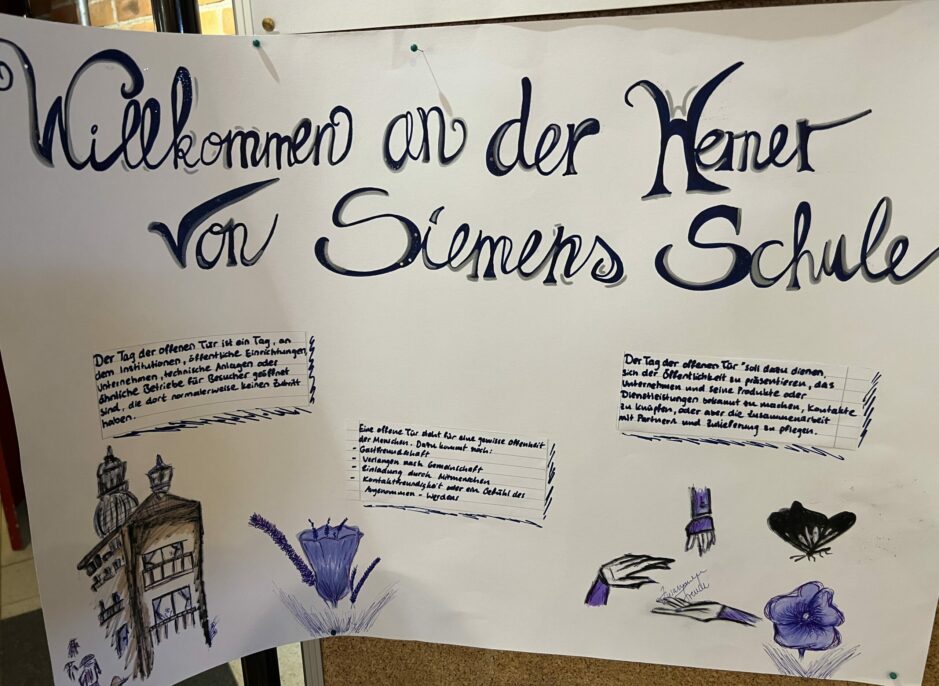 Willkommen an der Werner
von Siemens Schule
Der Tag der offenen Tür ist ein Tag, an
dem Institutionen, öffentliche Einrichtungen,
Unternehmen, technische Anlagen oder
ähnliche Betriebe für Besucher geöffnet
sind, die dort normalerweise keinen Zutritt
haben.
Eine offene Tür steht für eine gewisse Offenheit
der Menschen. Dazu kommt noch:
- Gastfreundschaft
- Verlangen nach Gemeinschaft
- Einladung durch Mitmenschen
- Kontaktfreudigkeit oder ein Gefühl des
Angenommen - Werdens
Der Tag der offenen Tür "soll dazu dienen,
sich der Öffentlichkeit zu präsentieren, das
Unternehmen und seine Produkte oder
Dienstleistungen bekannt zu machen, Kontakte
zu knüpfen, oder aber die Zusammenarbeit
mit Partnern und Zulieferung zu pflegen.